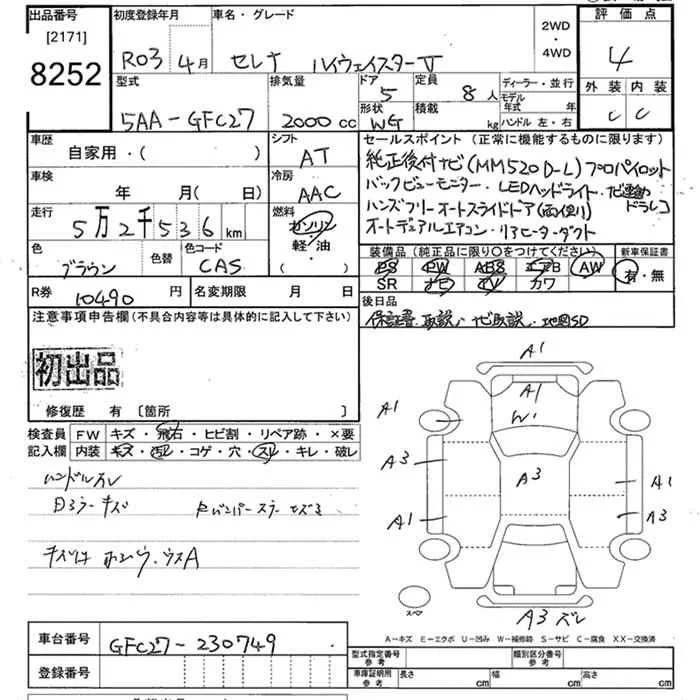 出品番号
[2171]
8252
初度登録年月
R03 4月
車名・グレード
セレナ ハイウェイスターV
2WD
・
4WD
評価点
4
型式
5AA-GFC27
排気量
2000cc
ドア
5
定員
8人
形状
WG
積載
kg
ディーラー・並行
モデル年式 年
ハンドル 左・右
外装 内装
C C
車歴
自家用・( )
シフト
AT
セールスポイント (正常に機能するものに限ります)
純正後付ナビ(MM520D-L) プロパイロット
バックビューモニター・LEDヘッドライト・ナビ連動
ハンズフリーオートスライドドア(両側) ドラレコ
オートデュアルエアコン・リアヒーターダクト
車検
年 月( 日)
冷房
AAC
走行
5万2千536km
燃料
ガソリン
軽・油
( )
色
ブラウン
色替
色コード
CAS
装備品 (純正品に限り○をつけてください)
PS PW ABS エアB AW
SR ナビ TV カワ
新車保証書
有・無
R券
10490円
名変期限 月 日
後日品
保証書、取説、ナビ取説、地図SD
注意事項申告欄 (不具合内容等は具体的に記入して下さい)
初出品
修復歴 有 [箇所 ]
検査員 FW キズ・飛石・ヒビ割・リペア跡・×要
記入欄 内装 キズ・汚レ・コゲ・穴・スレ・キレ・破レ
ハンドルスレ
キズ
A1
A1
W
A1
A3
A3
A1
A1
A3
スペア
A3 ズレ
A-キズ E-エクボ U-凹み W-補修跡 S-サビ C-腐食 XX-交換済
車台番号
GFC27-230749
登録番号
型式指定番号 参考
類別区分番号 参考
車庫証明用 参考
長さ cm 幅 cm 高さ cm